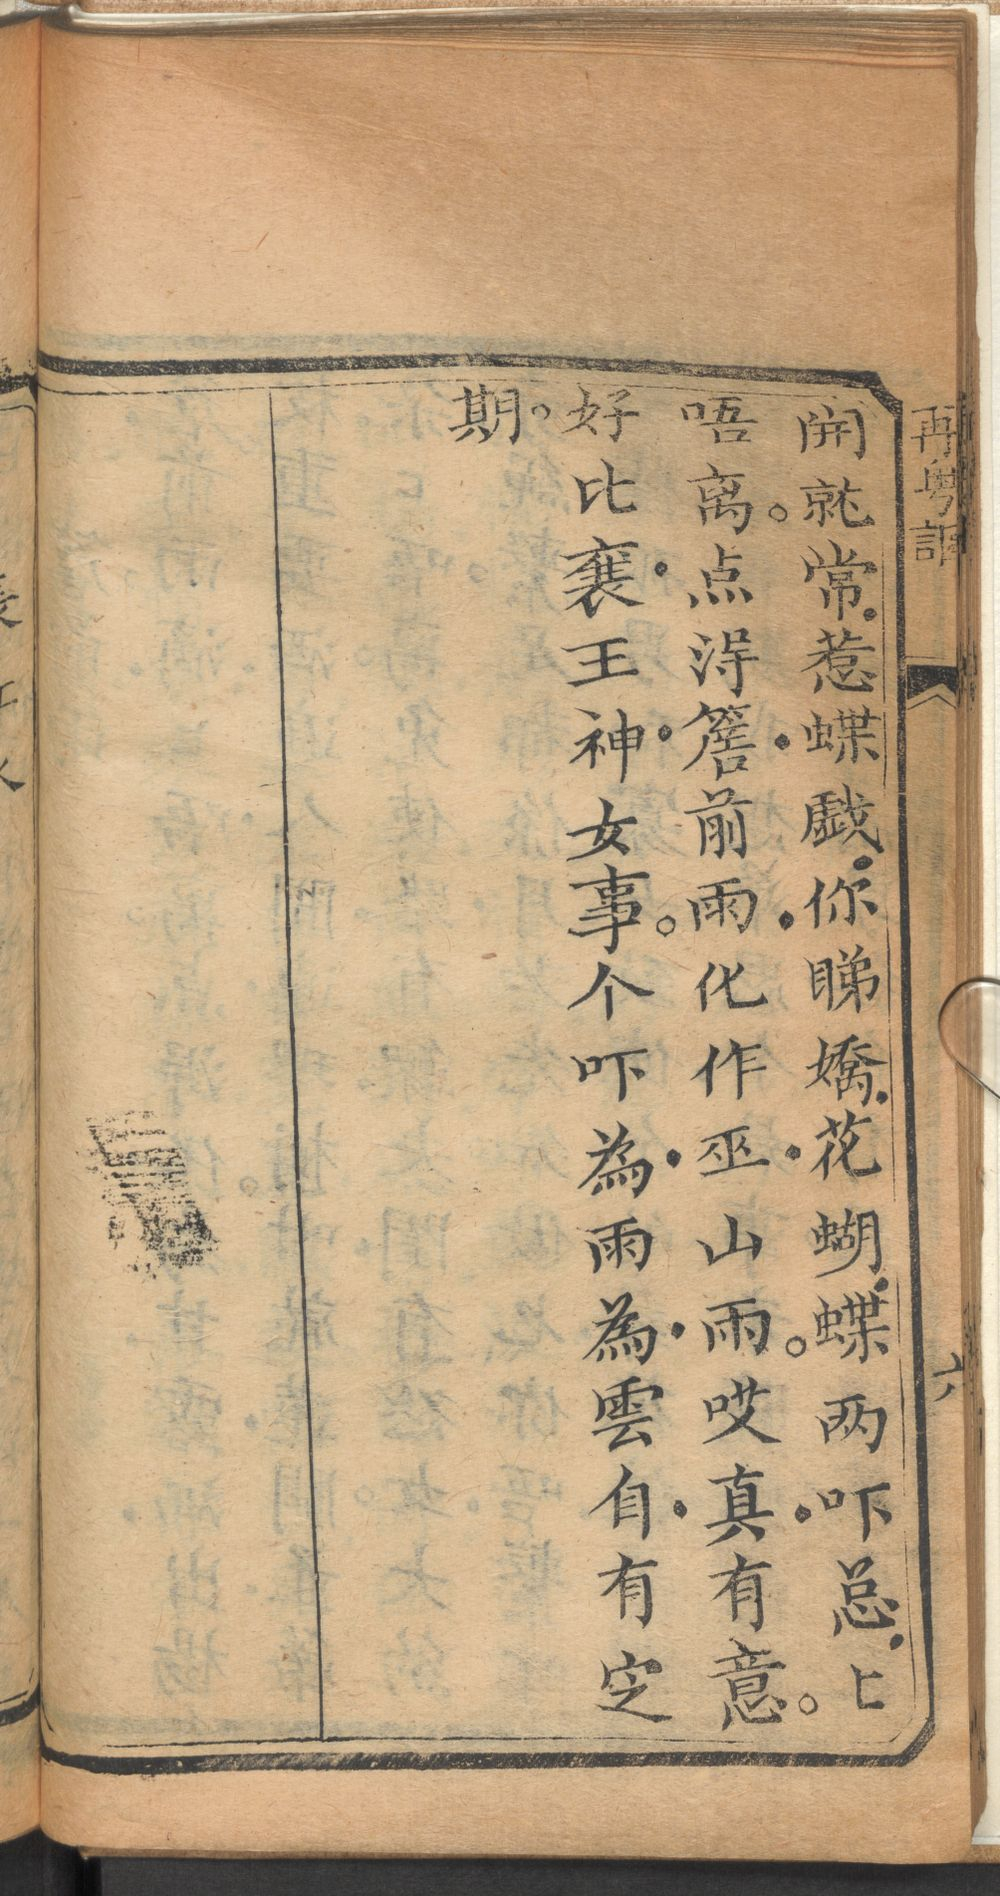 再粤謳
六
開就常惹蝶戲你睇嬌花蝴蝶两吓总〻
唔离。点得簷前雨化作巫山雨。哎真有意。
好比襄王神女事。个吓為雨為雲自有定
期。